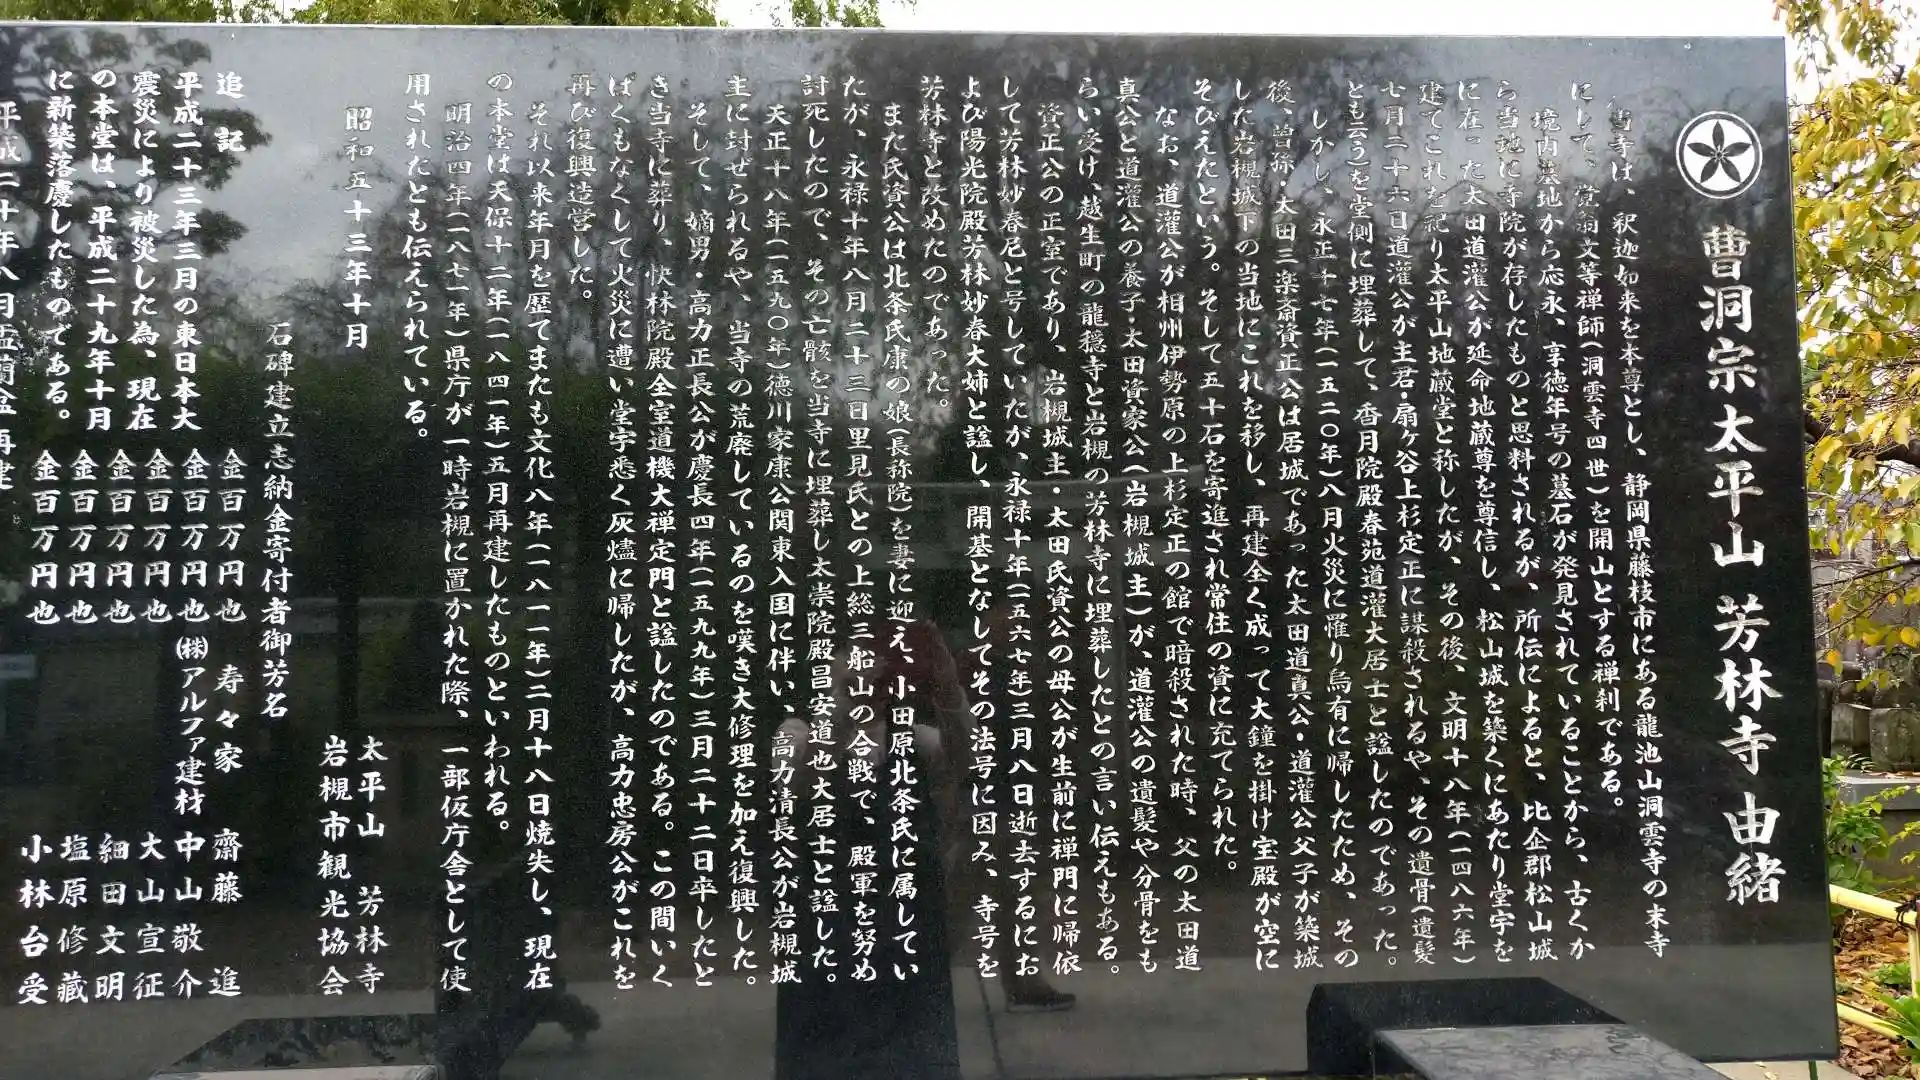 曹洞宗太平山 芳林寺 由緒
当寺は、釈迦如来を本尊とし、静岡県藤枝市にある龍池山洞雲寺の末寺
にして、覚翁文等禅師(洞雲寺四世)を開山とする禅刹である。
境内墓地から応永、享徳年号の墓石が発見されていることから、古くか
ら当地に寺院が存したものと思料されるが、所伝によると、比企郡松山城
に在った太田道灌公が延命地蔵尊を尊信し、松山城を築くにあたり堂宇を
建てこれを祀り太平山地蔵堂と称したが、その後、文明十八年(一四八六年)
七月二十六日道灌公が主君・扇ヶ谷上杉定正に謀殺されるや、その遺骨(遺髪
とも云う)を堂側に埋葬して、香月院殿春苑道灌大居士と諡したのであった。
しかし、永正十七年(一五二〇年)八月火災に罹り烏有に帰したため、その
後、曽孫・太田三楽斎資正公は居城であった太田道真公・道灌公父子が築城
した岩槻城下の当地にこれを移し、再建全く成って大鐘を掛け宝殿が空に
そびえたという。そして五十石を寄進され常住の資に充てられた。
なお、道灌公が相州伊勢原の上杉定正の館で暗殺された時、父の太田道
真公と道灌公の養子・太田資家公(岩槻城主)が、道灌公の遺髪や分骨をも
らい受け、越生町の龍穏寺と岩槻の芳林寺に埋葬したとの言い伝えもある。
資正公の正室であり、岩槻城主・太田氏資公の母公が生前に禅門に帰依
して芳林妙春尼と号していたが、永禄十年(一五六七年)三月八日逝去するにお
よび陽光院殿芳林妙春大姉と諡し、開基となしてその法号に因み、寺号を
芳林寺と改めたのであった。
また氏資公は北条氏康の娘(長祢院)を妻に迎え、小田原北条氏に属してい
たが、永禄十年八月二十三日里見氏との上総三船山の合戦で、殿軍を努め
討死したので、その亡骸を当寺に埋葬し太崇院殿昌安道也大居士と諡した。
天正十八年(一五九〇年)徳川家康公関東入国に伴い、高力清長公が岩槻城
主に封ぜられるや、当寺の荒廃しているのを嘆き大修理を加え復興した。
そして、嫡男・高力正長公が慶長四年(一五九九年)三月二十二日卒したと
き当寺に葬り、快林院殿全室道機大禅定門と諡したのである。この間いく
ばくもなくして火災に遭い堂宇悉く灰燼に帰したが、高力忠房公がこれを
再び復興造営した。
それ以来年月を歴てまたも文化八年(一八一一年)二月十八日焼失し、現在
の本堂は天保十二年(一八四一年)五月再建したものといわれる。
明治四年(一八七一年)県庁が一時岩槻に置かれた際、一部仮庁舎として使
用されたとも伝えられている。
昭和五十三年十月
太平山 芳林寺
岩槻市観光協会
石碑建立志納金寄付者御芳名
金百万円也 寿々家 齋藤 進
金百万円也 ㈱アルファ建材 中山敬介
金百万円也 大山宣征
金百万円也 細田文明
金百万円也 塩原修藏
金百万円也 小林台受
追記
平成二十三年三月の東日本大
震災により被災した為、現在
の本堂は、平成二十九年十月
に新築落慶したものである。
平成二十年八月盂蘭盆 再建